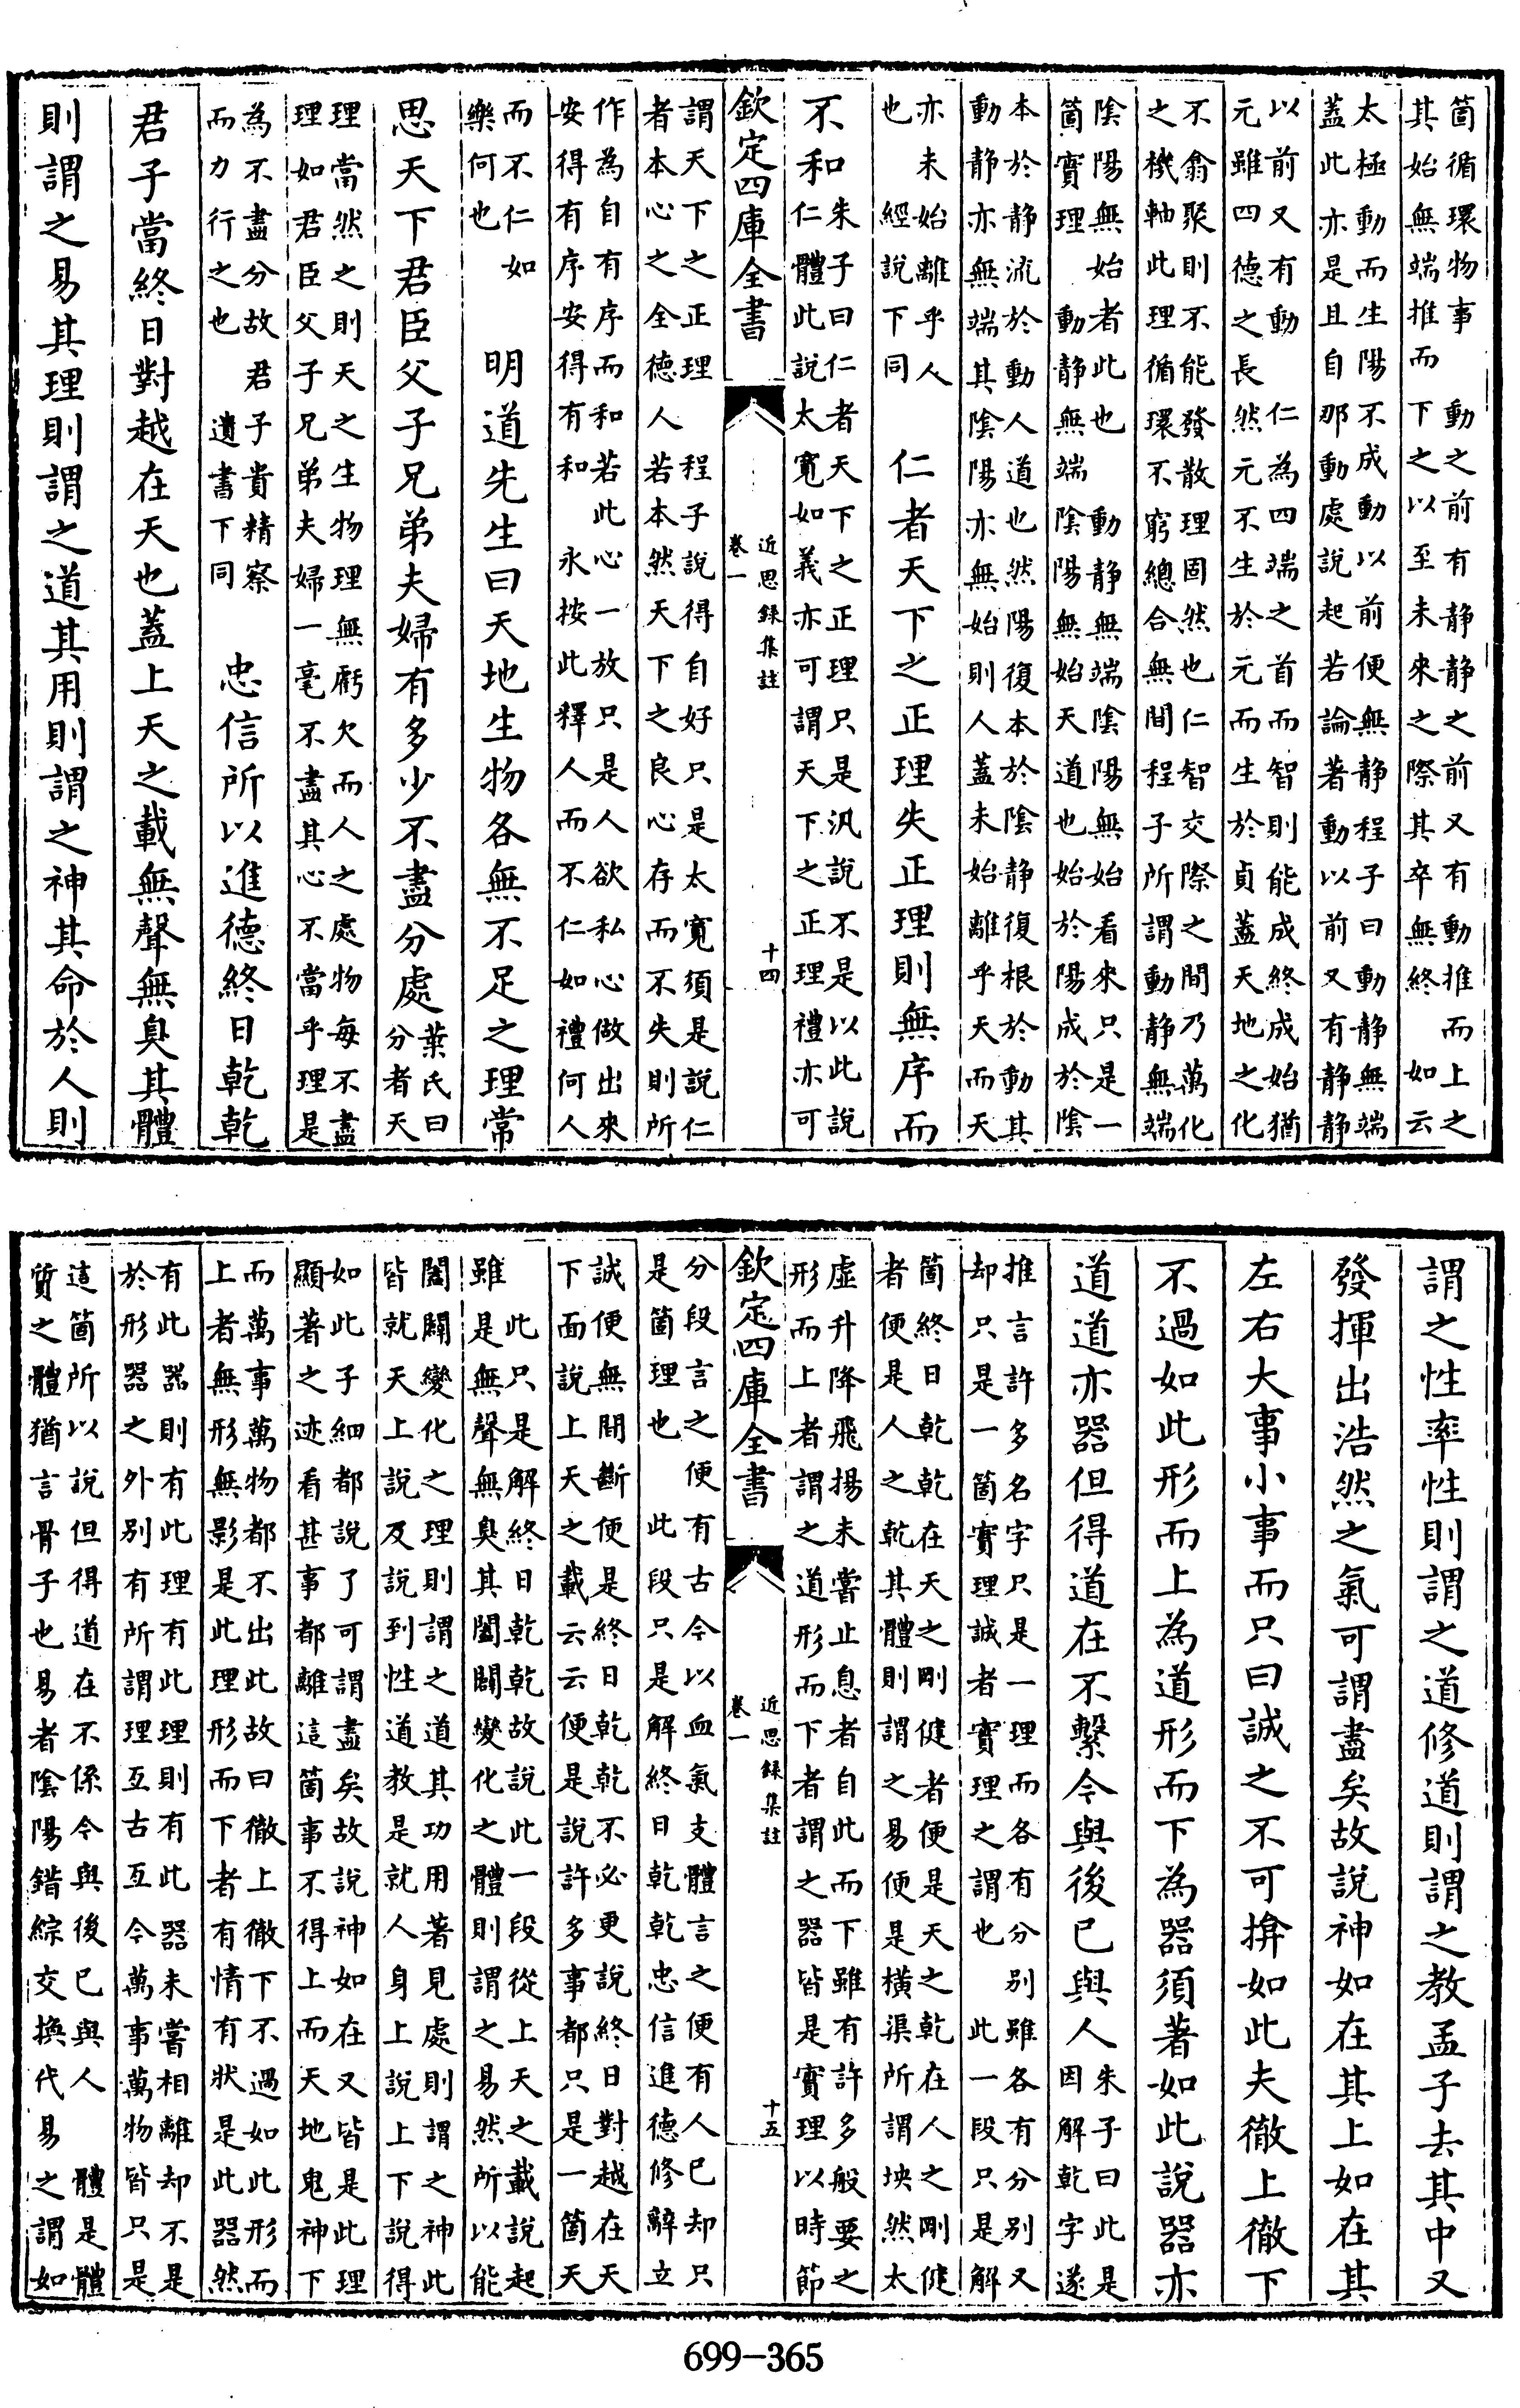 箇循環物事　動之前有静静之前又有動推而上之
其始無端推而下之以至未來之際其卒無終　如云
太極動而生陽不成動以前便無静程子曰動静無端
蓋此亦是且自那動處說起若論著動以前又有静静
以前又有動　仁為四端之首而智則能成終成始猶
元雖四德之長然元不生於元而生於貞蓋天地之化
不翕聚則不能發散理固然也仁智交際之間乃萬化
之機軸此理循環不窮𦂳合無間程子所謂動静無端
陰陽無　始者此也　動静無端陰陽無始看來只是一
箇實理　動静無端陰陽無始天道也始於陽成於陰
本於静流於動人道也然陽復本於陰静復根於動其
動静亦無端其陰陽亦無始則人蓋未始離乎天而天
亦未始離乎人
也　經說下同
仁者天下之正理失正理則無序而
不和
朱子曰仁者天下之正理只是汎說不是以此說
仁體此說太寛如義亦可謂天下之正理禮亦可
欽定四庫全書
近思録集註
卷一
十四
謂天下之正理　程子說得自好只是太寛須是說仁
者本心之全德人若本然天下之良心存而不失則所
作為自有序而和若此心一放只是人欲私心做出來
安得有序安得有和　永按此釋人而不仁如禮何人
而不仁如
樂何也
明道先生曰天地生物各無不足之理常
思天下君臣父子兄弟夫婦有多少不盡分處
葉氏曰
分者天
理當然之則天之生物理無虧欠而人之處物每不盡
理如君臣父子兄弟夫婦一毫不盡其心不當乎理是
為不盡分故　君子貴精察
而力行之也　遺書下同
忠信所以進德終日乾乾
君子當終日對越在天也蓋上天之載無聲無臭其體
則謂之易其理則謂之道其用則謂之神其命於人則
謂之性率性則謂之道修道則謂之教孟子去其中又
發揮出浩然之氣可謂盡矣故說神如在其上如在其
左右大事小事而只曰誠之不可揜如此夫徹上徹下
不過如此形而上為道形而下為器須著如此說器亦
道道亦器但得道在不繫今與後已與人
朱子曰此是
因解乾字遂
推言許多名字只是一理而各有分別雖各有分別又
却只是一箇實理誠者實理之謂也　此一段只是解
箇終日乾乾在天之剛健者便是天之乾在人之剛健
者便是人之乾其體則謂之易便是橫渠所謂坱然太
虛升降飛揚未嘗止息者自此而下雖有許多般要之
形而上者謂之道形而下者謂之器皆是實理以時節
欽定四庫全書
近思録集註
卷一
十五
分段言之便有古今以血氣支體言之便有人已却只
是箇理也　此段只是解終日乾乾忠信進德修辭立
誠便無間斷便是終日乾乾不必更說終日對越在天
下面說上天之載云云便是說許多事都只是一箇天
此只是解終日乾乾故說此一段從上天之載說起
雖是無聲無臭其闔闢變化之體則謂之易然所以能
闔闢變化之理則謂之道其功用著見處則謂之神此
皆就天上說及說到性道教是就人身上說上下說得
如此子細都說了可謂盡矣故說神如在又皆是此理
顯著之迹看甚事都離這箇事不得上而天地鬼神下
而萬事萬物都不出此故曰徹上徹下不過如此形而
上者無形無影是此理形而下者有情有狀是此器然
有此器則有此理有此理則有此器未嘗相離却不是
於形器之外別有所謂理亙古亙今萬事萬物皆只是
這箇所以說但得道在不係今與後已與人　體是體
質之體猶言骨子也易者陰陽錯綜交換代易之謂如
699-365